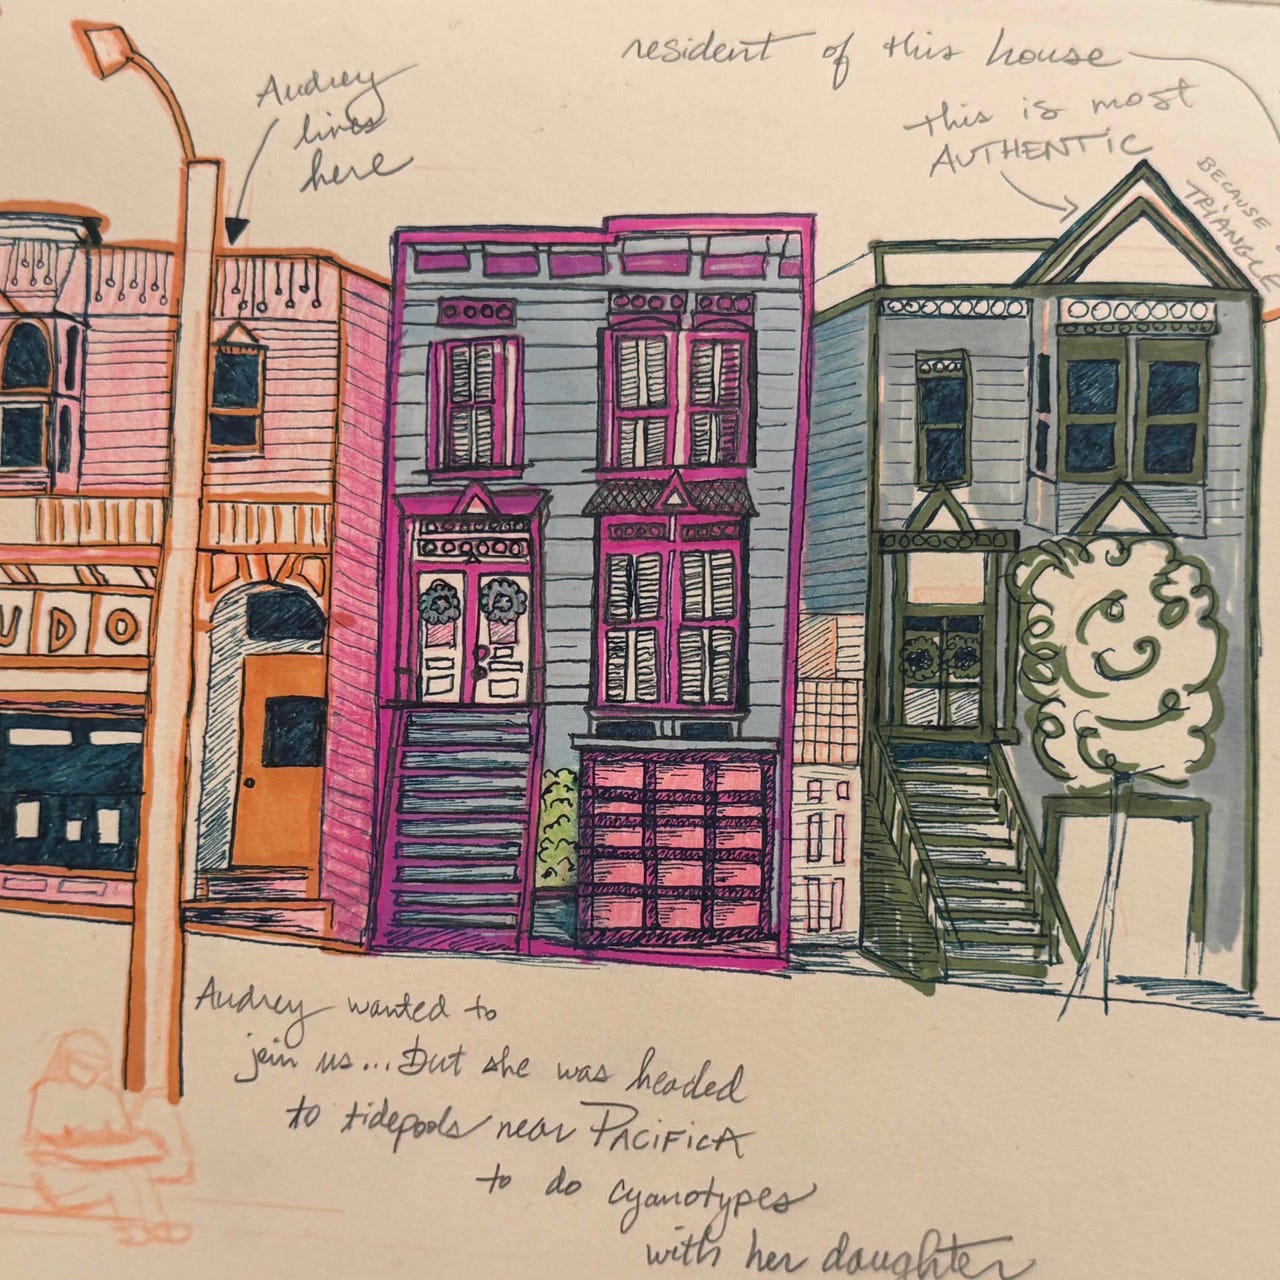 resident of this house
this is most
AUTHENTIC
BECAUSE
TRIANGLE
Audrey
lives
here
UDO
Audrey wanted to
join us... but she was headed
to tidepools near PACIFICA
to do cyanotypes
with her daughter